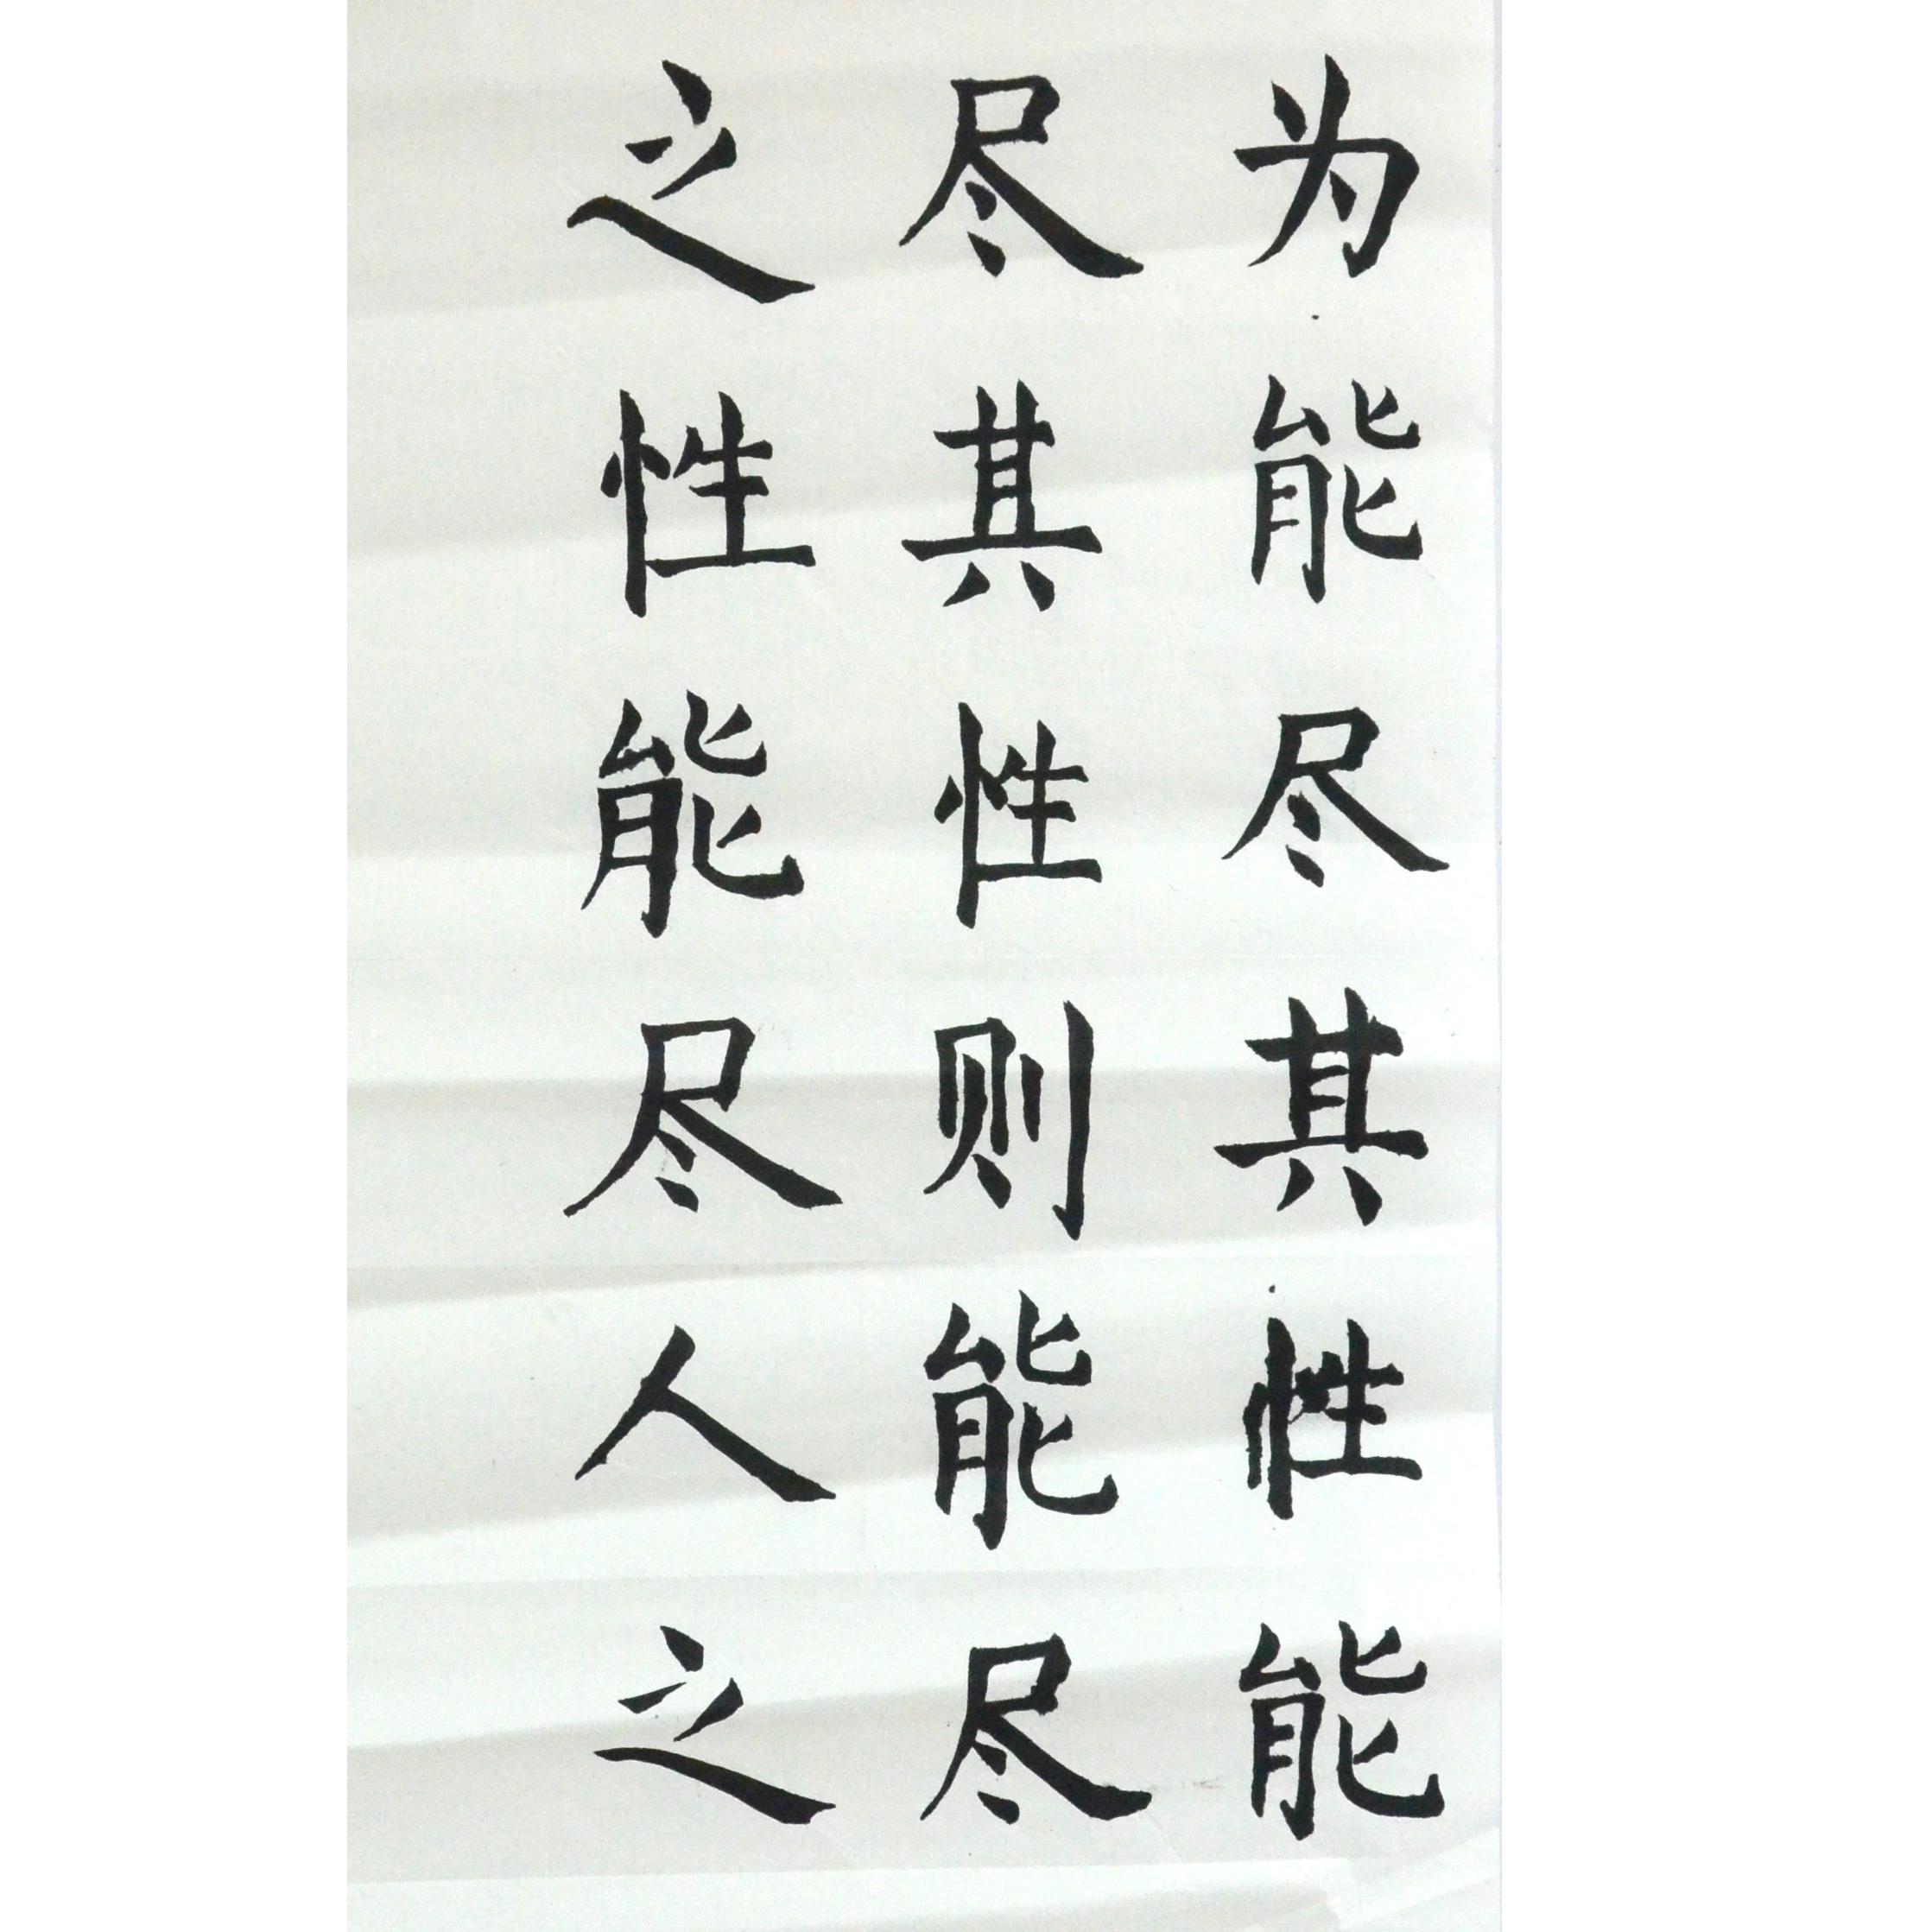 为能尽其性能
尽其性则能尽
之性能尽人之